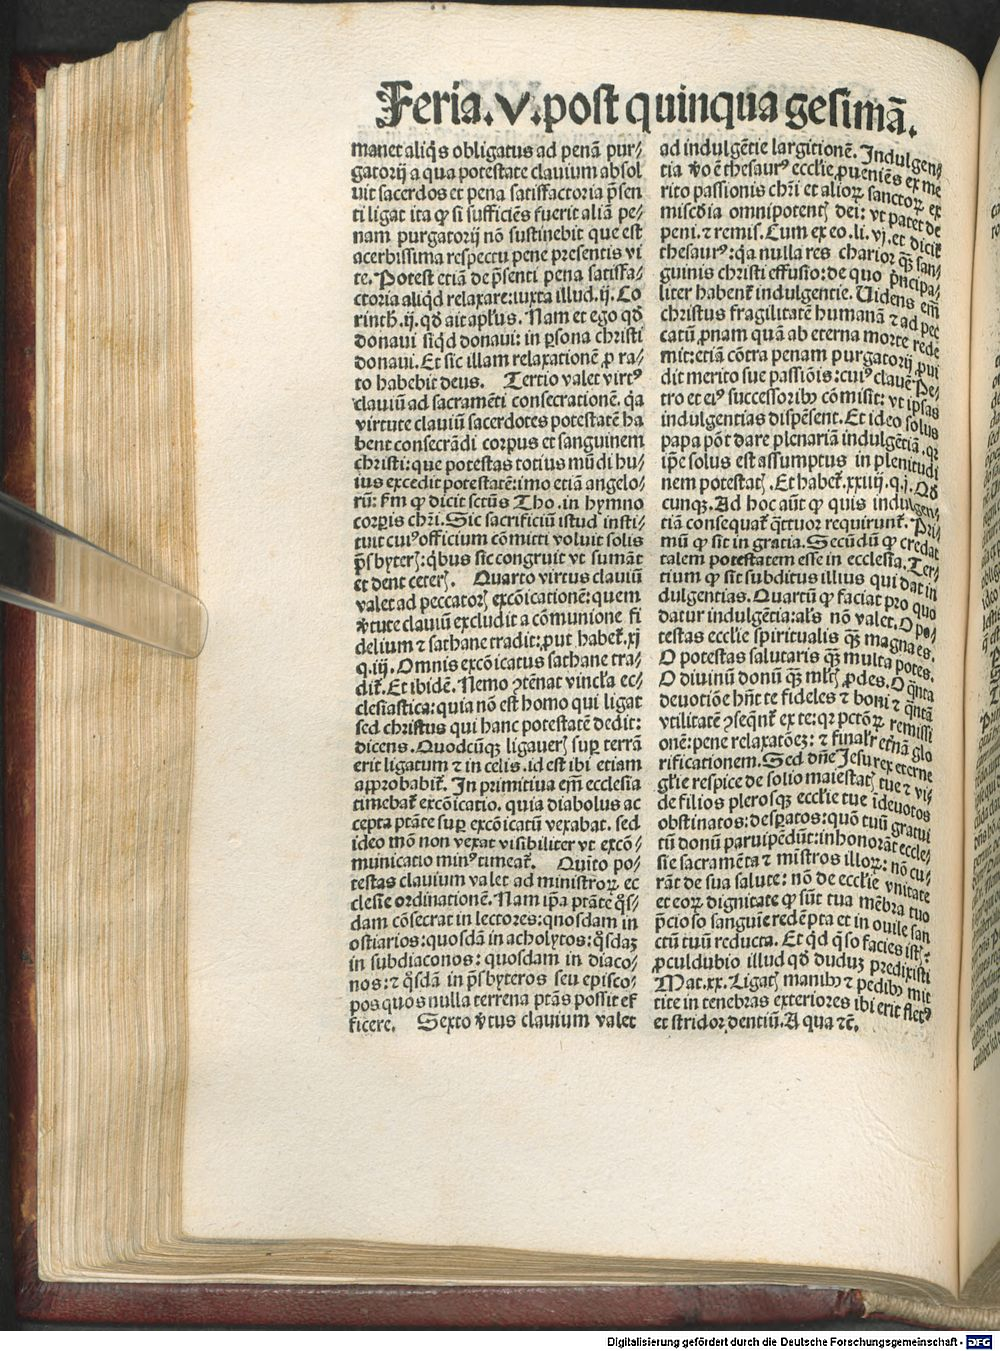 Feria. V. post quinquagesimā.
manet aliq̄s obligatus ad penā pur⸗
gatorij a qua potestate clauium absol
uit sacerdos et pena satisfactoria p̄sen
ti ligat ita ꝙ si sufficiēs fuerit aliā pe⸗
nam purgatorij nō sustinebit que est
acerbissima respectu pene presentis vi
te. Potest etiā de p̄senti pena satisfa⸗
ctoria aliqd relaxare: iuxta illud. ij. Co
rinth. ij. qd̄ ait apl̄us. Nam et ego qd̄
donaui siqd donaui: in ꝑsona christi
donaui. Et sic illam relaxationē ꝓ ra⸗
to habebit deus. Tertio valet virtꝰ
clauiū ad sacramēti consecrationē. q̄a
virtute clauiū sacerdotes potestatē ha
bent consecrādi corpus et sanguinem
christi: que potestas totius mūdi hu⸗
ius excedit potestatē: imo etiā angelo⸗
rū: fm ꝙ dicit sctūs Tho. in hymno
corꝑis chrī. Sic sacrificiū istud insti⸗
tuit cuiꝰ officium cōmitti voluit solis
p̄sbyterꝭ: qbus sic congruit vt sumāt
et dent ceterꝭ. Quarto virtus clauiū
valet ad peccatorꝭ excōicationē: quem
v̄tute clauiū excludit a cōmunione fi
delium ⁊ sathane tradit: ꝓut habet̄. xj
q. iij. Omnis excōicatus sathane tra⸗
dit̄. Et ibidē. Nemo ꝯtēnat vincl̄a ec⸗
clesiastica: quia nō est homo qui ligat
sed christus qui hanc potestatē dedit:
dicens. Quodcūqꝫ ligauerꝭ suꝑ terrā
erit ligatum ⁊ in celis. id est ibi etiam
approbabit̄. In primitiua em̄ ecclesia
timebat̄ excōicatio. quia diabolus ac
cepta ptāte suꝑ excōicatū vexabat. sed
ideo mō non vexat visibiliter vt excō⸗
municatio minꝰ timeat̄. Quīto po⸗
testas clauium valet ad ministroꝝ ec
clesie ordinationē. Nam ip̄a ptāte q̄s⸗
dam cōsecrat in lectores: quosdam in
ostiarios: quosdā in acholytos: q̄sdaꝫ
in subdiaconos: quosdam in diaco⸗
nos: ⁊ q̄sdā in p̄sbyteros seu episco⸗
pos quos nulla terrena ptās possit ef
ficere. Sexto v̄tus clauium valet
ad indulgētie largitionē. Indulgen⸗
tia v̄o ē thesaurꝰ eccl̄ie ꝓueniēs ex me
rito passionis chrī et alioꝝ sanctoꝝ ex
misc̄dia omnipotentꝭ dei: vt patet de
peni. ⁊ remis. Cum ex eo. li. vj. et dicit̄
thesaurꝰ: q̄a nulla res charior qꝫ san⸗
guinis christi effusio: de quo p̄ncipa⸗
liter habent̄ indulgentie. Uidens em̄
christus fragilitatē humanā ⁊ ad pec
catū ꝓnam quā ab eterna morte rede
mit: etiā cōtra penam purgatorij ꝓui
dit merito sue passiōis: cuiꝰ clauē Pe⸗
tro et eiꝰ successoribꝰ cōmisit: vt ipsas
indulgentias dispēsent. Et ideo solus
papa pōt dare plenariā indulgētiā. qꝛ
ip̄e solus est assumptus in plenitudi
nem potestatꝭ. Et habet̄. xxiiij. q. j. Qd̄
cunqꝫ. Ad hoc aūt ꝙ quis indulgen⸗
tiā consequat̄ q̄ttuor requirunt̄. Pri⸗
mū ꝙ sit in gratia. Secūdū ꝙ credat
talem potestatem esse in ecclesia. Ter⸗
tium ꝙ sit subditus illius qui dat in
dulgentias. Quartū ꝙ faciat pro quo
datur indulgētia: al̄s nō valet. O po⸗
testas eccl̄ie spiritualis qꝫ magna es.
O potestas salutaris qꝫ multa potes.
O diuinū donū qꝫ ml̄tꝭ ꝓdes. O q̄nta
deuotiōe hn̄t te fideles ⁊ boni ⁊ q̄ntā
vtilitatē ꝯseqn̄t ex te: qꝛ pctōꝝ remissi
onē: pene relaxatōeꝫ: ⁊ final̄r et̄nā glo
rificationem. Sed dn̄e Jesu rex eterne
gl̄ie respice de solio maiestatꝭ tue ⁊ vi⸗
de filios plerosqꝫ eccl̄ie tue īdeuotos
obstinatos: desꝑatos: quō tuū gratui
tū donū paruipēdūt: inhonorāt eccle⸗
sie sacramēta ⁊ mīstros illoꝝ: nō cu⸗
rāt de sua salute: nō de eccl̄ie vnitate
et eoꝝ dignitate ꝙ sūt tua mēbra tuo
p̄cioso sanguīe redēpta et in ouile san
ctū tuū reducta. Et qd q̄so facies istꝭ:
ꝓculdubio illud qd̄ duduꝫ predixisti
Mat. xx. Ligatꝭ manibꝰ ⁊ pedibꝰ mit
tite in tenebras exteriores ibi erit fletꝰ
et stridor dentiū. A qua ⁊c̄.
Digitalisierung gefördert durch die Deutsche Forschungsgemeinschaft - DFG